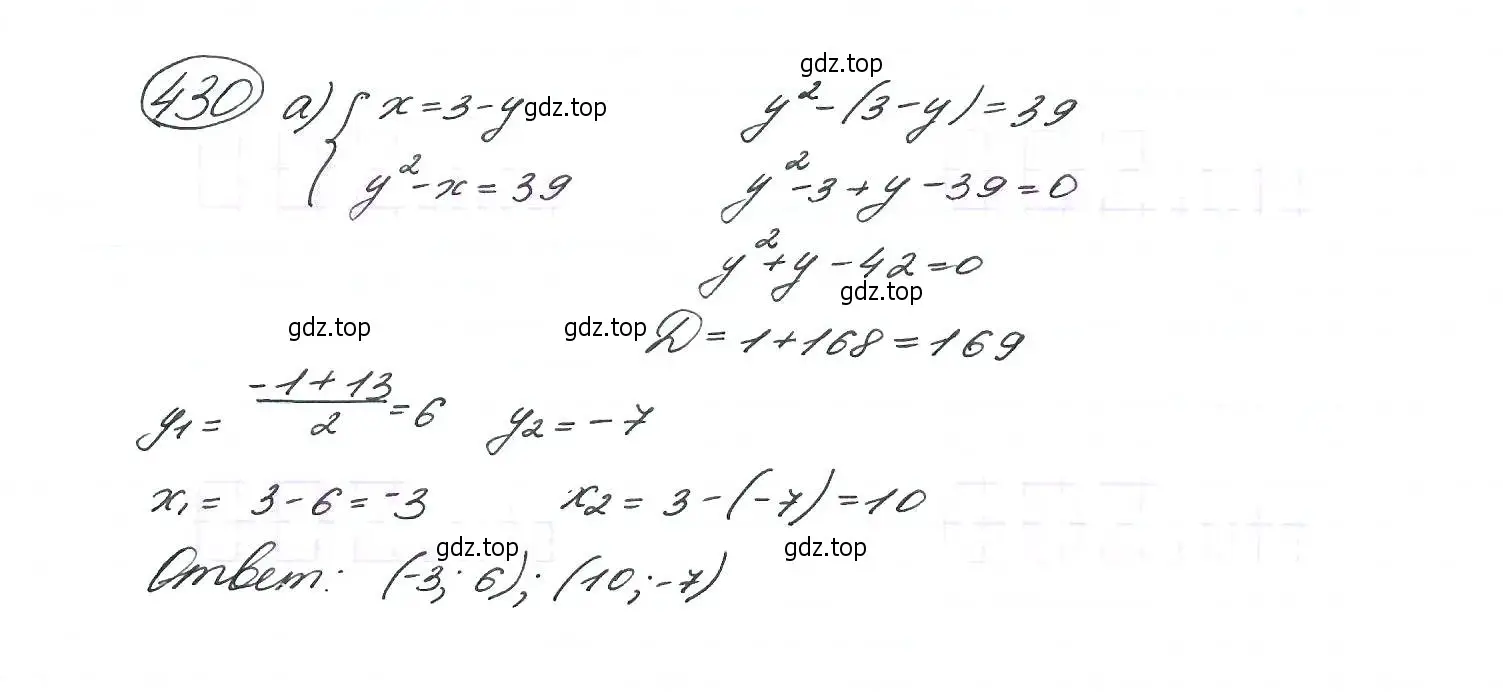 gdz.top
430 а) { x = 3 - y gdz.top y² - (3 - y) = 39
y² - x = 39 y² - 3 + y - 39 = 0
y² + y - 42 = 0
gdz.top
gdz.top gdz.top D = 1 + 168 = 169
y₁ = (-1 + 13)/2 = 6 y₂ = -7
x₁ = 3 - 6 = -3 x₂ = 3 - (-7) = 10
gdz.top gdz.top
Ответ: (-3; 6); (10; -7)